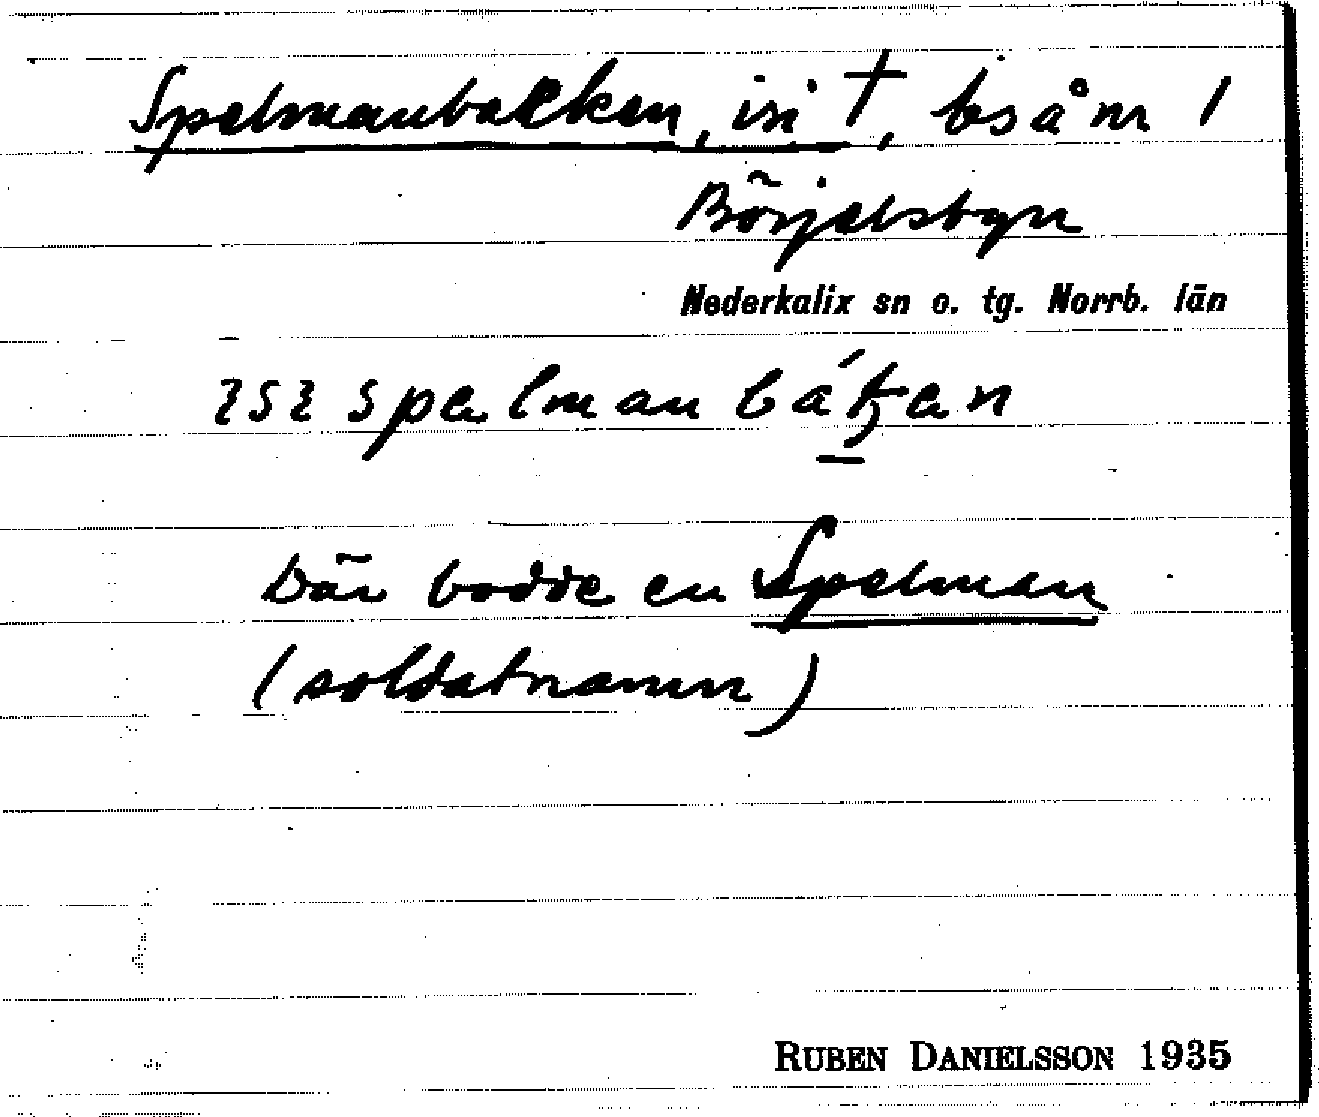 Spelmanbacken, in i †, bs å nr 1
Börjelsbyn
Nederkalix sn o. tg. Norrb. län
spelman
Där bodde en Spelman
(soldatnamn)
RUBEN DANIELSSON 1935